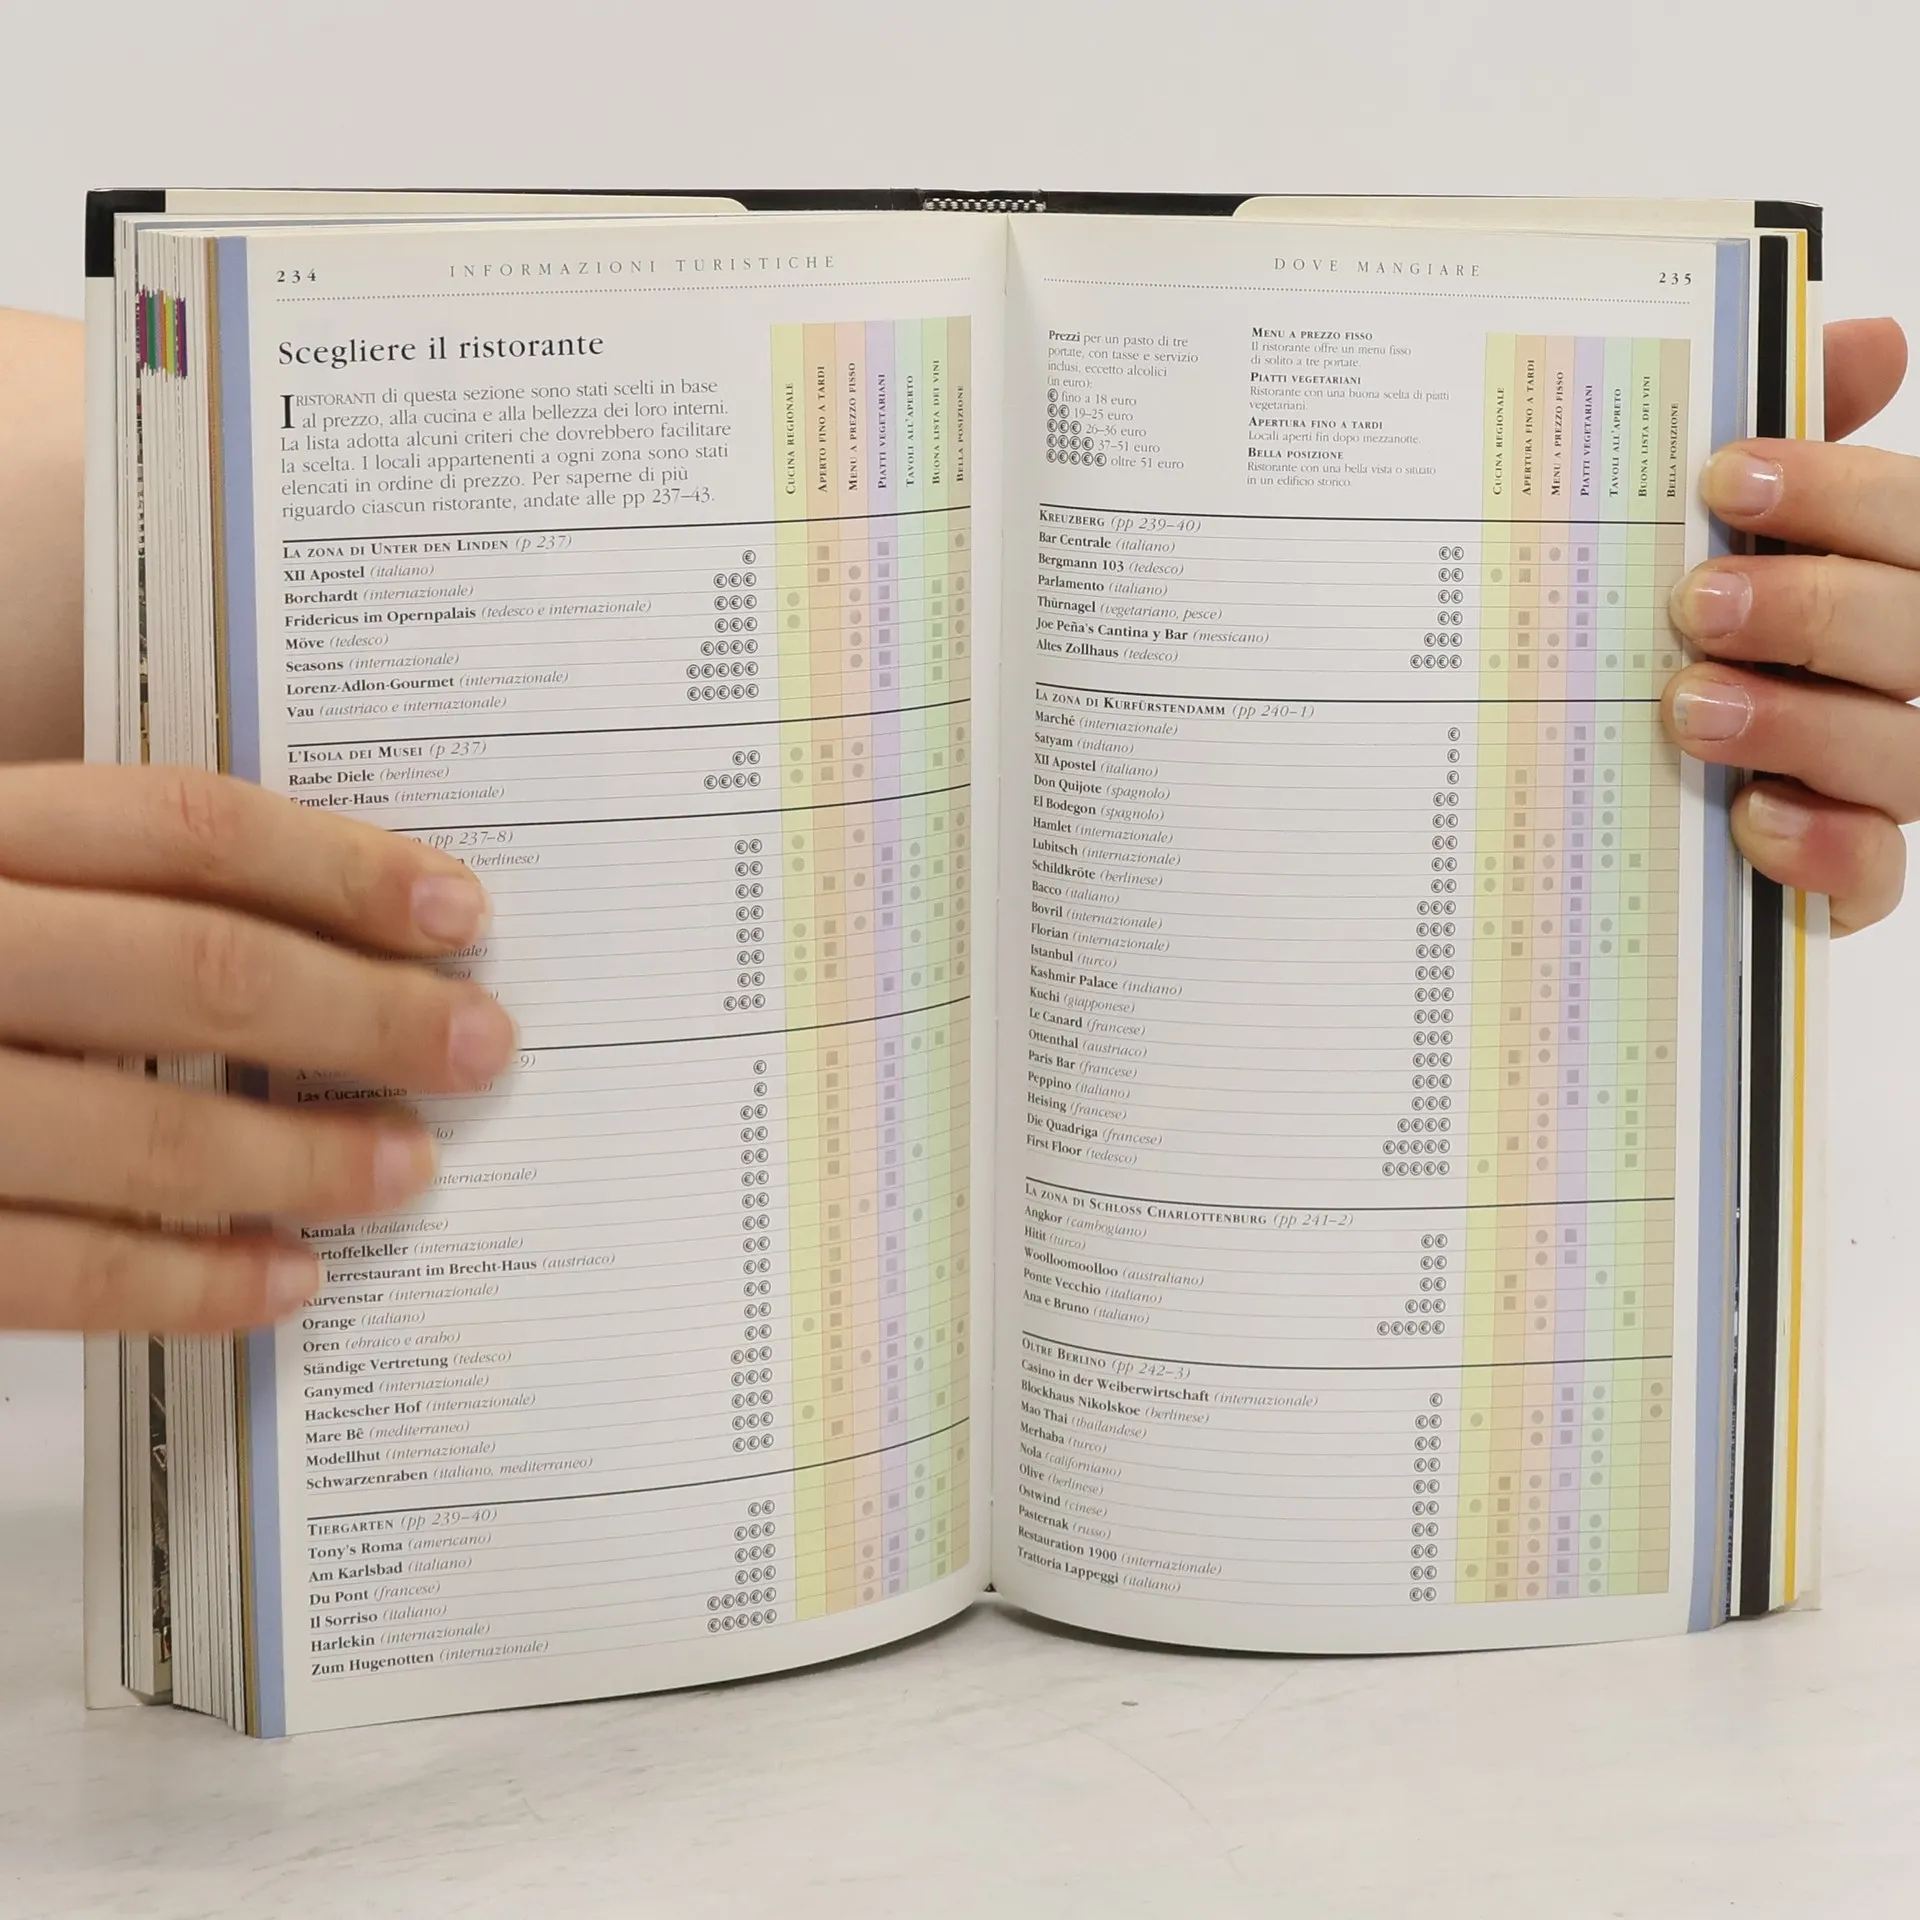 234
INFORMAZIONI TURISTICHE
Scegliere il ristorante
I RISTORANTI di questa sezione sono stati scelti in base
al prezzo, alla cucina e alla bellezza dei loro interni.
La lista adotta alcuni criteri che dovrebbero facilitare
la scelta. I locali appartenenti a ogni zona sono stati
elencati in ordine di prezzo. Per saperne di più
riguardo ciascun ristorante, andate alle pp 237–43.
CUCINA REGIONALE
APERTO FINO A TARDI
MENU A PREZZO FISSO
PIATTI VEGETARIANI
TAVOLI ALL'APERTO
BUONA LISTA DEI VINI
BELLA POSIZIONE
LA ZONA DI UNTER DEN LINDEN (p 237)
XII Apostel (italiano) €
Borchardt (internazionale) €€€
Fridericus im Opernpalais (tedesco e internazionale) €€€
Möve (tedesco) €€€
Seasons (internazionale) €€€€
Lorenz-Adlon-Gourmet (internazionale) €€€€€
Vau (austriaco e internazionale) €€€€€
L'ISOLA DEI MUSEI (p 237)
Raabe Diele (berlinese) €€
Ermeler-Haus (internazionale) €€€€
(pp 237–8)
(berlinese) €€
€€
€€
€€
€€
€€
€€
€€€
–9)
Las Cucarachas €
€
€€
€€
€€
internazionale) €€
€€
Kamala (thailandese) €€
artoffelkeller (internazionale) €€
lerrestaurant im Brecht-Haus (austriaco) €€
Kurvenstar (internazionale) €€
Orange (italiano) €€
Oren (ebraico e arabo) €€
Ständige Vertretung (tedesco) €€€
Ganymed (internazionale) €€€
Hackescher Hof (internazionale) €€€
Mare Bê (mediterraneo) €€€
Modellhut (internazionale) €€€
Schwarzenraben (italiano, mediterraneo)
TIERGARTEN (pp 239–40)
Tony's Roma (americano) €€
Am Karlsbad (italiano) €€€
Du Pont (francese) €€€
Il Sorriso (italiano) €€€
Harlekin (internazionale) €€€€€
Zum Hugenotten (internazionale) €€€€€
DOVE MANGIARE
235
Prezzi per un pasto di tre
portate, con tasse e servizio
inclusi, eccetto alcolici
(in euro):
€ fino a 18 euro
€€ 19–25 euro
€€€ 26–36 euro
€€€€ 37–51 euro
€€€€€ oltre 51 euro
MENU A PREZZO FISSO
Il ristorante offre un menu fisso
di solito a tre portate.
PIATTI VEGETARIANI
Ristorante con una buona scelta di piatti
vegetariani.
APERTURA FINO A TARDI
Locali aperti fin dopo mezzanotte.
BELLA POSIZIONE
Ristorante con una bella vista o situato
in un edificio storico.
CUCINA REGIONALE
APERTURA FINO A TARDI
MENU A PREZZO FISSO
PIATTI VEGETARIANI
TAVOLI ALL'APRETO
BUONA LISTA DEI VINI
BELLA POSIZIONE
KREUZBERG (pp 239–40)
Bar Centrale (italiano) €€
Bergmann 103 (tedesco) €€
Parlamento (italiano) €€
Thürnagel (vegetariano, pesce) €€
Joe Peña's Cantina y Bar (messicano) €€€
Altes Zollhaus (tedesco) €€€€
LA ZONA DI KURFÜRSTENDAMM (pp 240–1)
Marché (internazionale) €
Satyam (indiano) €
XII Apostel (italiano) €
Don Quijote (spagnolo) €€
El Bodegon (spagnolo) €€
Hamlet (internazionale) €€
Lubitsch (internazionale) €€
Schildkröte (berlinese) €€
Bacco (italiano) €€€
Bovril (internazionale) €€€
Florian (internazionale) €€€
Istanbul (turco) €€€
Kashmir Palace (indiano) €€€
Kuchi (giapponese) €€€
Le Canard (francese) €€€
Ottenthal (austriaco) €€€
Paris Bar (francese) €€€
Peppino (italiano) €€€
Heising (francese) €€€€
Die Quadriga (francese) €€€€€
First Floor (tedesco) €€€€€
LA ZONA DI SCHLOSS CHARLOTTENBURG (pp 241–2)
Angkor (cambogiano) €€
Hitit (turco) €€
Woolloomoolloo (australiano) €€
Ponte Vecchio (italiano) €€€
Ana e Bruno (italiano) €€€€€
OLTRE BERLINO (pp 242–3)
Casino in der Weiberwirtschaft (internazionale) €
Blockhaus Nikolskoe (berlinese) €€
Mao Thai (thailandese) €€
Merhaba (turco) €€
Nola (californiano) €€
Olive (berlinese) €€
Ostwind (cinese) €€
Pasternak (russo) €€
Restauration 1900 (internazionale) €€
Trattoria Lappeggi (italiano) €€